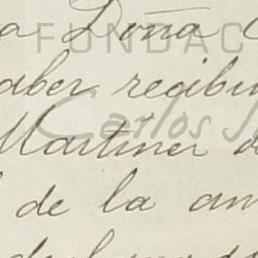 a Doña C
FUNDAC
aber recibi
Carlos
Martinez d
l de la am